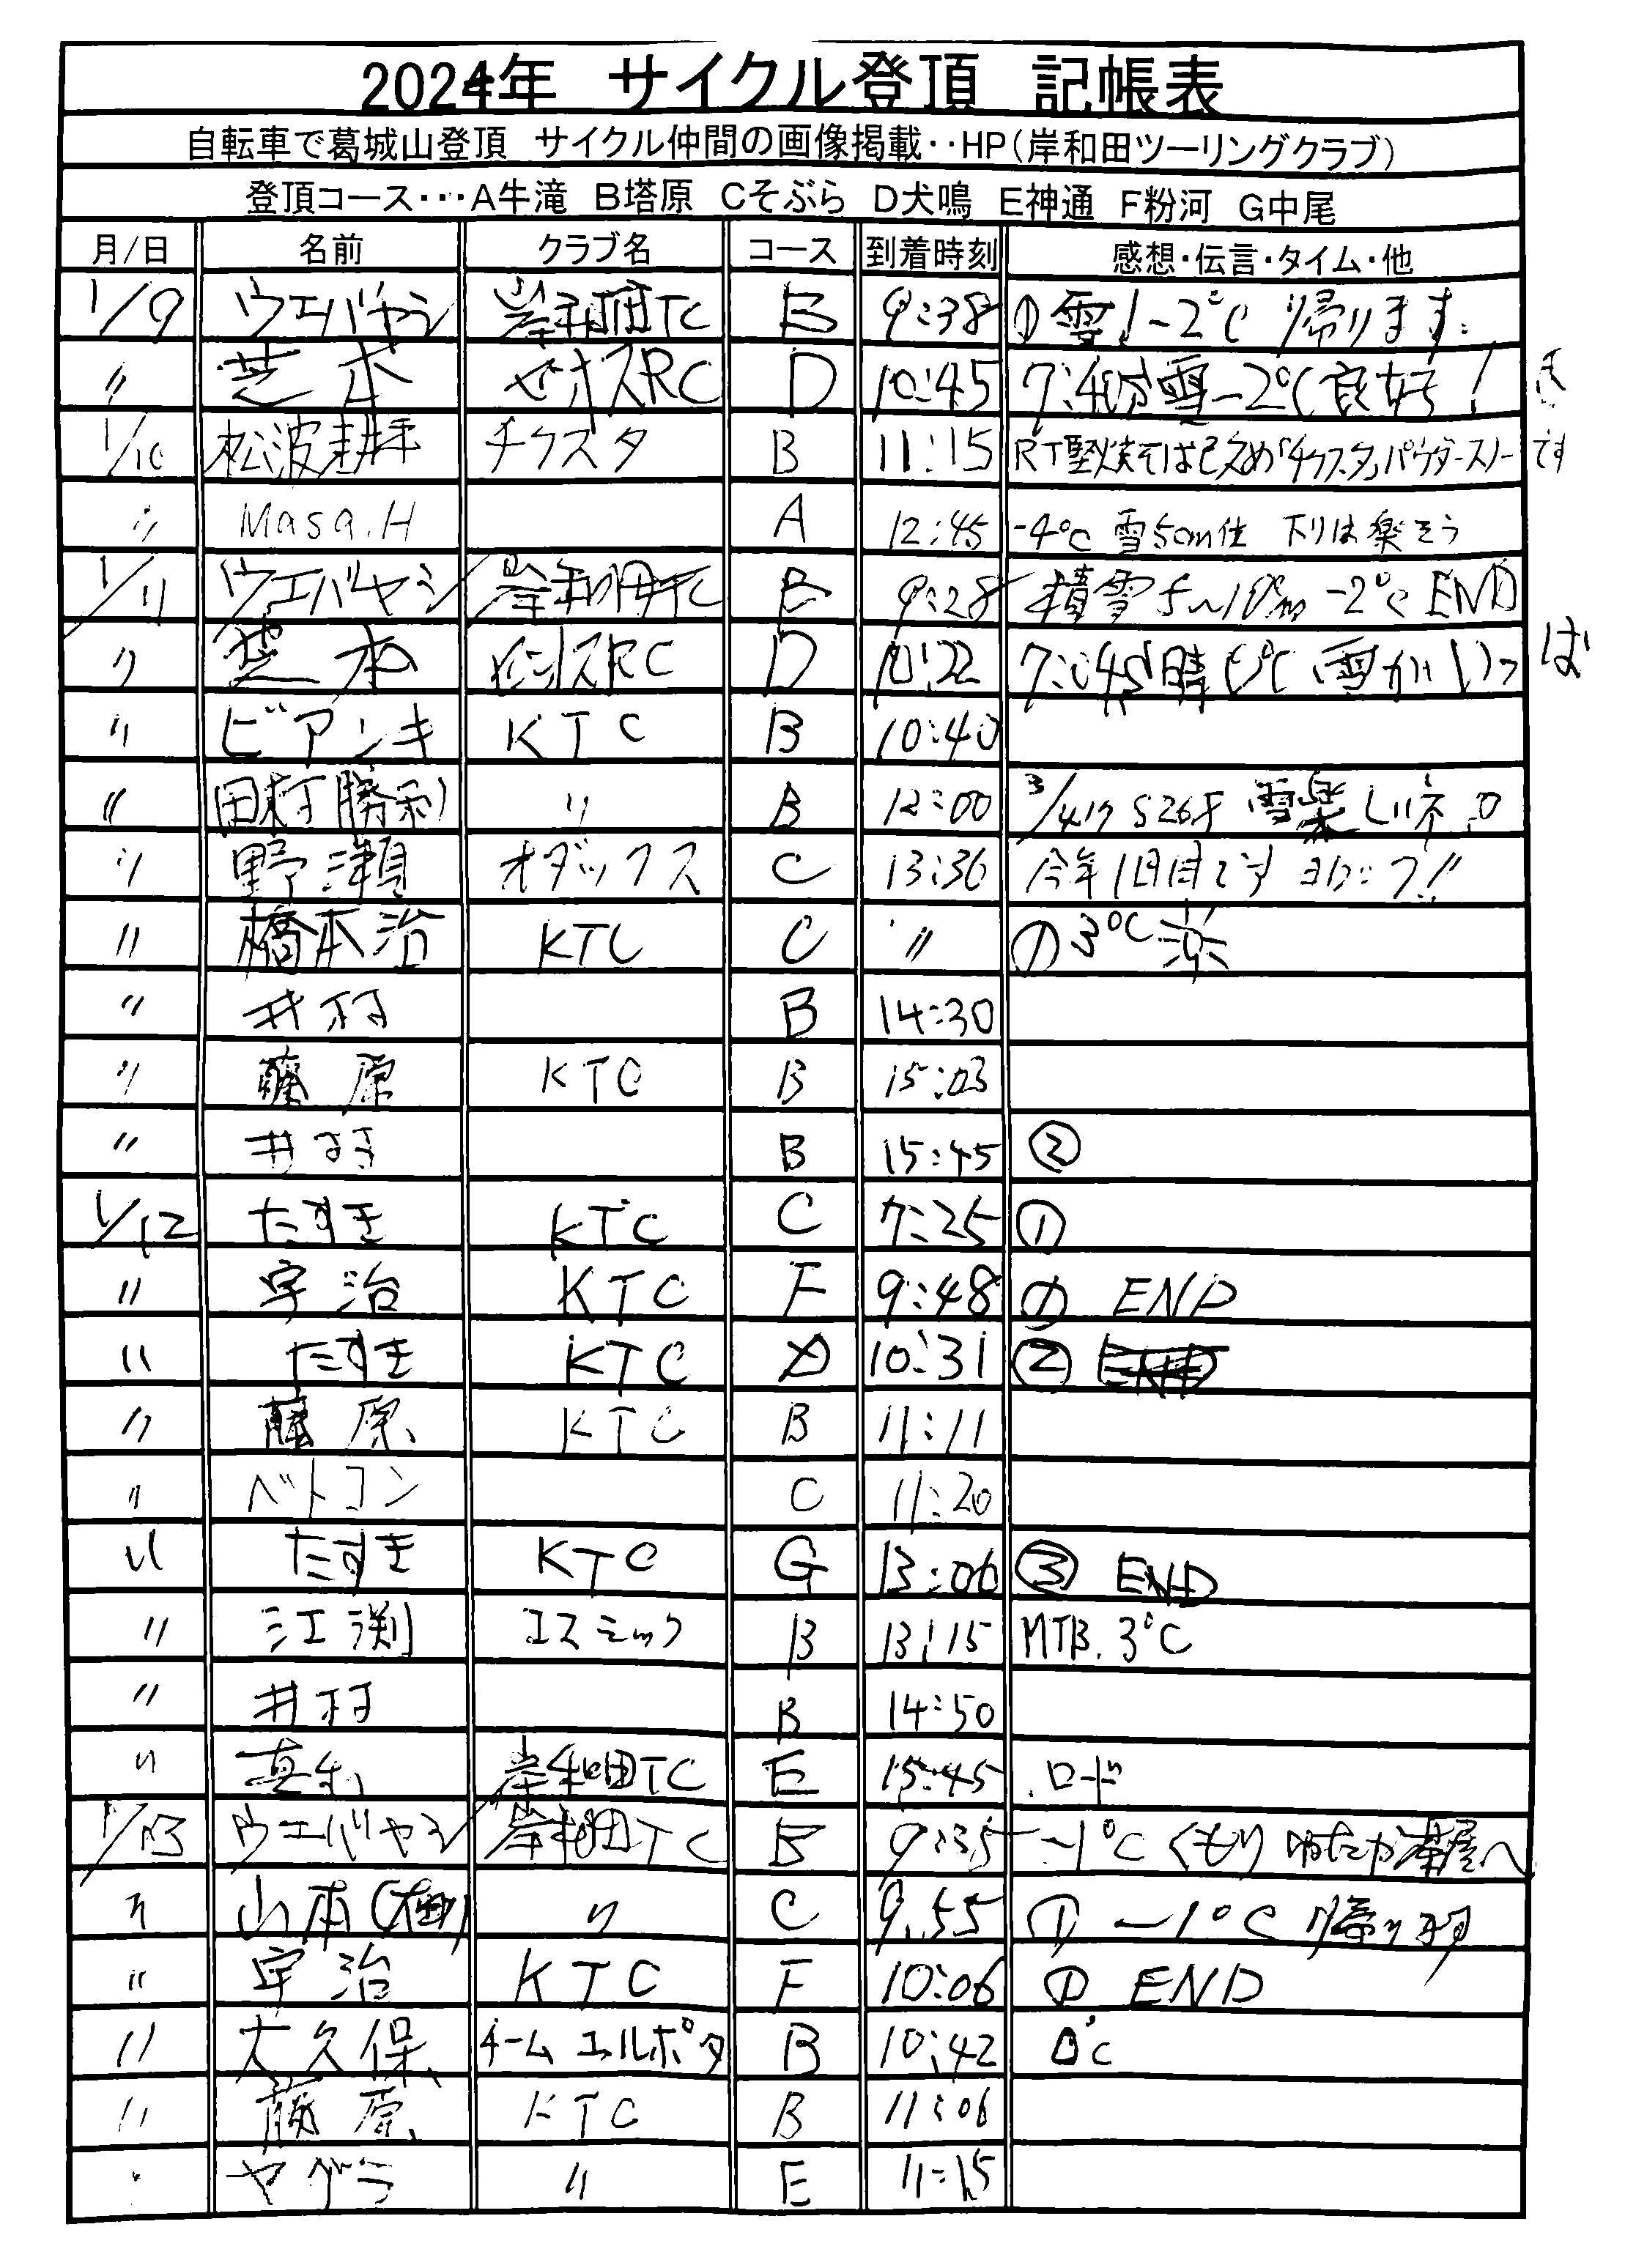 2024年 サイクル登頂 記帳表
自転車で葛城山登頂 サイクル仲間の画像掲載‥HP(岸和田ツーリングクラブ)
登頂コース‥‥A牛滝 B塔原 Cそぶら D犬鳴 E神通 F粉河 G中尾
月/日 名前 クラブ名 コース 到着時刻 感想・伝言・タイム・他
1/9 ウエバヤシ 岸和田TC B 9:38 ① 雪! -2℃ 帰ります.
〃 芝本 RC D 10:45 雪-2℃良好!
1/10 松波耕平 チクスタ B 11:15 RT堅焼そば 「チクスタ」パウダースノーです
〃 Masa.H A 12:45 -4℃ 雪5cm位 下りは楽そう
1/11 ウエバヤシ 岸和田TC 9:28 積雪 -2℃ END
〃 芝本 RC D 10:22 7:45 晴 0℃ 雪がいっぱ
〃 ビアンキ KTC B 10:40
〃 田村勝利 〃 B 12:00 雪楽しいネ。
〃 野瀬 オダックス C 13:36 今年1日目です ヨロシク!!
〃 橋本治 KTC C 〃 ① 3℃
〃 井村 B 14:30
〃 藤原 KTC B 15:03
〃 井村 B 15:45 ②
1/12 たすき KTC C 7:25 ①
〃 宇治 KTC F 9:48 ① END
〃 たすき KTC D 10:31 ②
〃 藤原 KTC B 11:11
〃 ベトコン C 11:20
〃 たすき KTC G 13:06 ③ END
〃 江渕 コスミック B 13:15 MTB. 3℃
〃 井村 B 14:50
〃 岸和田TC E 15:45 ロード
1/13 ウエバヤシ 岸和田TC B 9:35 -1℃ くもり ゆたか茶屋へ
〃 山本 〃 C 9.55 ① -1℃ 帰ります
〃 宇治 KTC F 10:06 ① END
〃 大久保 チーム エルポタ B 10:42 0℃
〃 藤原 KTC B 11:06
〃 ヤグラ 〃 E 11:15